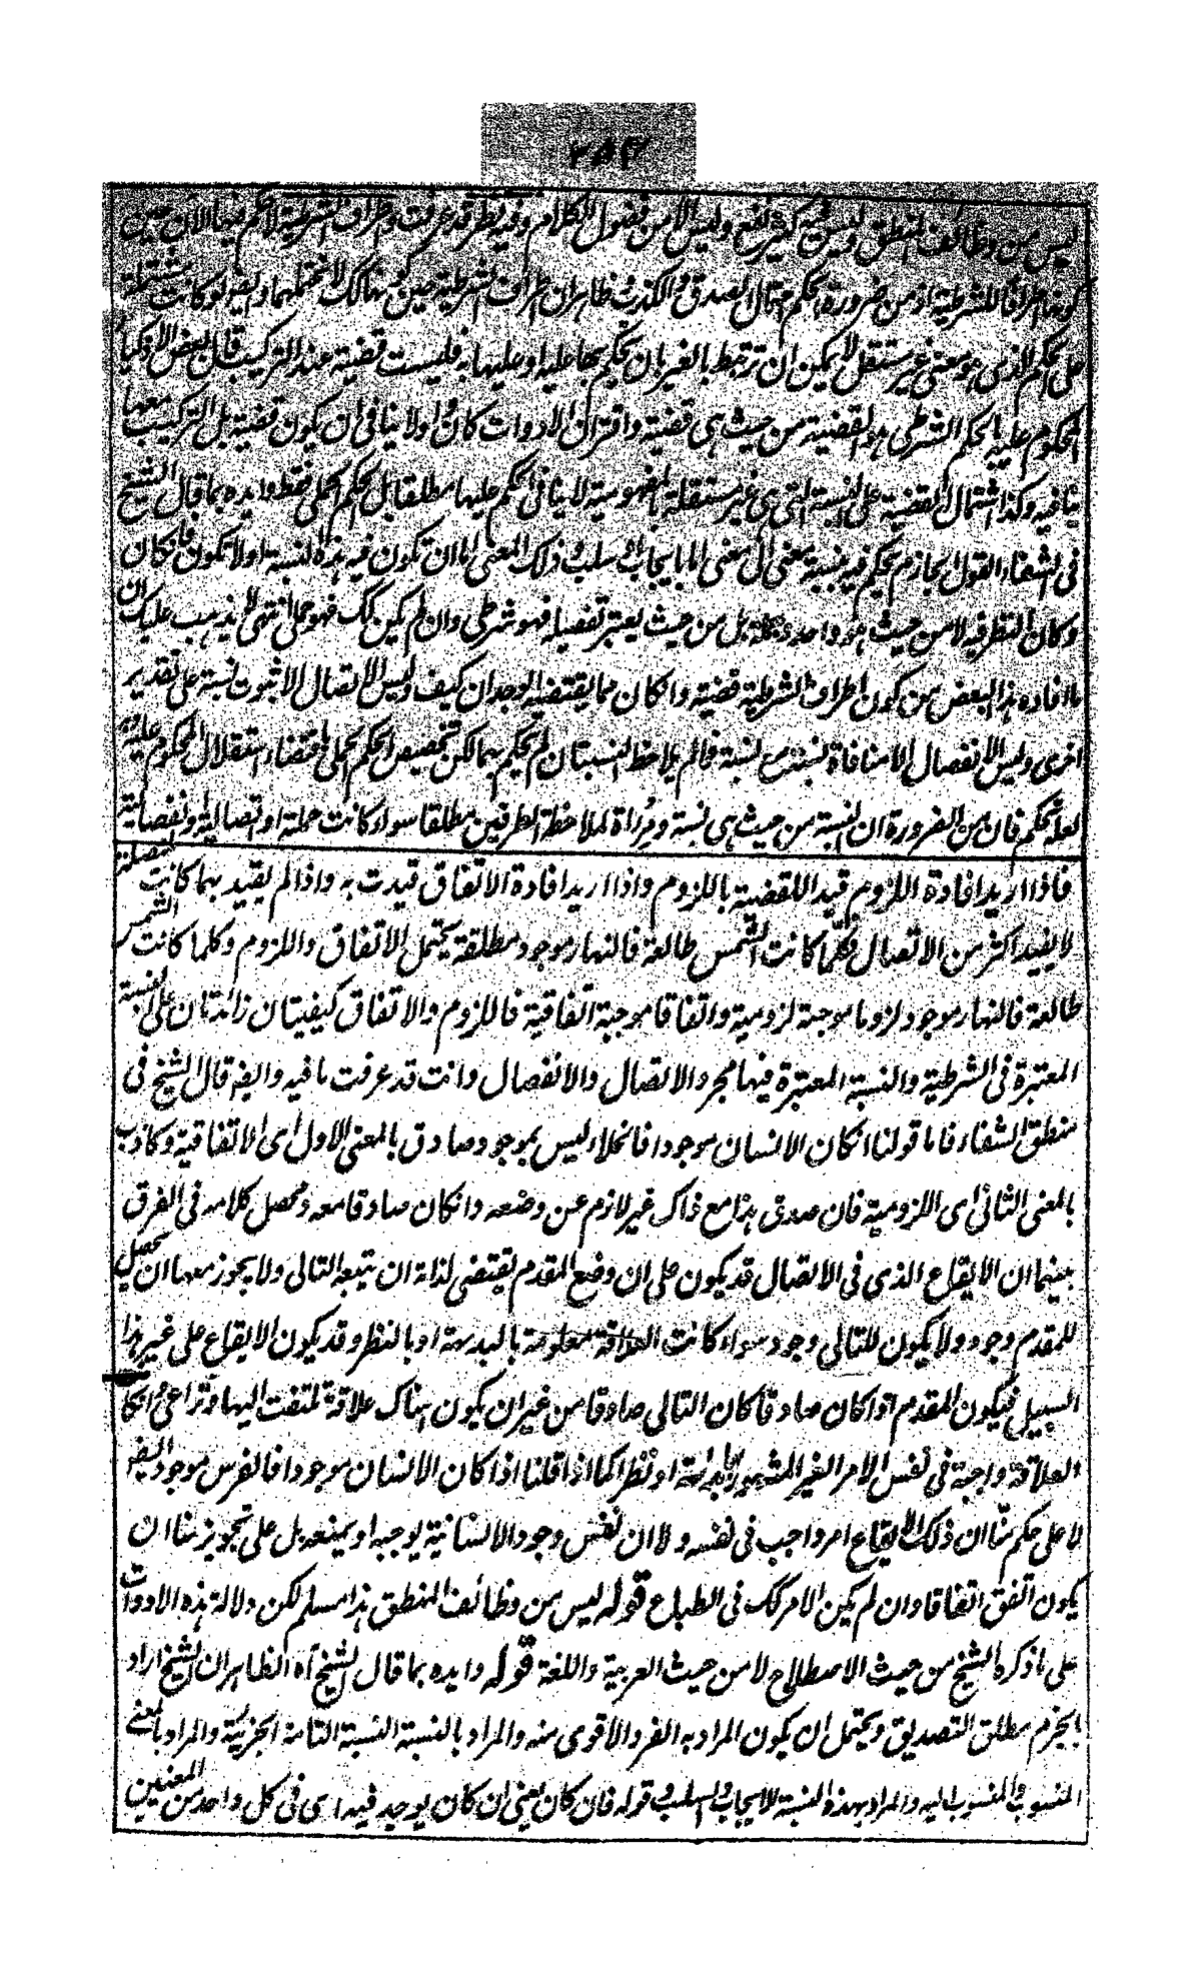 ٢٥٢
ليس من وظائف المنطق وليس فيه كثير نفع وليس الا من فضول الكلام وفيه نظر قد عرفت واطراف الشرطية لا حكم فيها الآن حين
كونها اطرافا للشرطية اذ من ضرورة الحكم احتمال الصدق والكذب وظاهر ان اطراف الشرطية حين كونها كك لا تحتملهما وايضه لو كانت مشتملة
على الحكم الذى هو معنى غير مستقل لا يمكن ان ترتبط بالغير بان يحكم بها عليه او عليها به فليست قضية عند التركيب قال بعض الاذكياء
المحكوم عليه بالحكم الشرطى هو القضية من حيث هى قضية واقتران الادوات كان ولو لا ينافى ان يكون قضية بل التركيب معها
ينافيه وكذا اشتمال القضية على النسبة التى هى غير مستقلة بالمفهومية لا ينافى الحكم عليها مطلقا بل الحكم الحملى فقط وايده بما قال الشيخ
فى الشفاء القول الجازم يحكم فيه بنسبة معنى الى معنى اما بايجاب او سلب وذلك المعنى اما ان تكون فيه هذه النسبة او لا تكون فان كان
وكان النظر فيه لا من حيث هو واحد وجملة بل من حيث يعتبر تفصيله فهو شرطى وان لم يكن كك فهو حملى انتهى لا يذهب عليك ان
ما افاده هذا البعض من كون اطراف الشرطية قضية وان كان مما يقتضيه الوجدان كيف وليس الاتصال الا ثبوت نسبة على تقدير
اخرى وليس الانفصال الا منافاة نسبة مع نسبة فما لم يلاحظ النسبتان لم يحكم بهما لكن تخصيص الحكم الحملى باقتضاء استقلال المحكوم عليه وبه
لعله تحكم فان من الضرورة ان النسبة من حيث هى نسبة ومرآة لملاحظة الطرفين مطلقا سواء كانت حملية او اتصالية او انفصالية
فاذا اريد افادة اللزوم قيد القضية باللزوم واذا اريد افادة الاتفاق قيدت به واذا لم يقيد بهما كانت المتصلة
لا يفيد اكثر من الاتصال فكلما كانت الشمس طالعة فالنهار موجود مطلقة يحتمل الاتفاق واللزوم وكلما كانت الشمس
طالعة فالنهار موجود لزوما موجبة لزومية واتفاقا موجبة اتفاقية فاللزوم والاتفاق كيفيتان زائدتان على النسبة
المعتبرة فى الشرطية والنسبة المعتبرة فيها مجرد الاتصال والانفصال وانت قد عرفت ما فيه وايضه قال الشيخ فى
منطق الشفاء فاما قولنا ان كان الانسان موجودا فالخلاء ليس بموجود صادق بالمعنى الاول اى الاتفاقية وكاذب
بالمعنى الثانى اى اللزومية فان صدق هذا مع ذاك غير لازم عن وضعه وان كان صادقا معه ومحصل كلامه فى الفرق
بينهما ان الايقاع الذى فى الاتصال قد يكون على ان وضع المقدم يقتضى لذاته ان يتبعه التالى ولا يجوز معها ان يحصل
للمقدم وجود ولا يكون للتالى وجود سواء كانت العلاقة معلومة بالبديهة او بالنظر وقد يكون الايقاع على غير هذا
السبيل فيكون المقدم اذا كان صادقا كان التالى صادقا من غير ان يكون هناك علاقة تلتفت اليها وتراعى وان كان
العلاقة واجبة فى نفس الامر الغير المشعور بها بداهة او نظرا كما اذا قلنا اذا كان الانسان موجودا فالفرس موجود ايضه
لا على حكم منا ان ذلك الايقاع امر واجب فى نفسه ولا ان نفس وجود الانسانية يوجبه او يمنعه بل على تجويز منا ان
يكون اتفق اتفاقا وان لم يكن الامر كك فى الطباع قوله ليس من وظائف المنطق هذا مسلم لكن دلالة هذه الادوات
على ما ذكره الشيخ من حيث الاصطلاح لا من حيث العربية واللغة قوله وايده بما قال الشيخ آه الظاهر ان الشيخ اراد
بالجزم مطلق التصديق ويحتمل ان يكون المراد به الفرد الاقوى منه والمراد بالنسبة النسبة التامة الخبرية والمراد بالمعنى
المنسوب والمنسوب اليه والمراد بهذه النسبة الايجاب والسلب وقوله فان كان يعنى ان كان يوجد فيه اى فى كل واحد من المعنيين